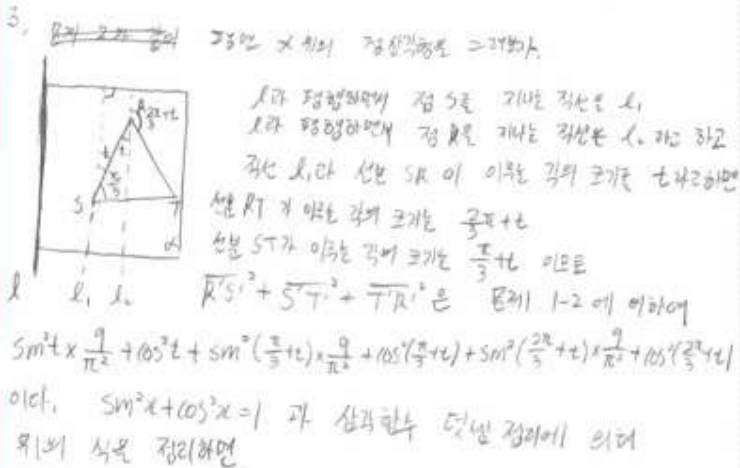 3. 평면 α 위의 정삼각형을 그려보자.
l과 평행하면서 점 S를 지나는 직선을 l₁
l과 평행하면서 점 R을 지나는 직선을 l₂ 라고 하고
직선 l₁과 선분 SR이 이루는 각의 크기를 t라고하면
선분 RT가 이루는 각의 크기는 2/3π+t
선분 ST가 이루는 각의 크기는 π/3+t 이므로
R'S'² + S'T'² + T'R'²은 문제 1-2에 의하여
sin²t × 9/π² + cos²t + sin²(π/3+t) × 9/π² + cos²(π/3+t) + sin²(2π/3+t) × 9/π² + cos²(2π/3+t)
이다. sin²x+cos²x=1 과 삼각함수 덧셈정리에 의해
위의 식을 정리하면
R 2/3π+t
t t
π/3
S T
α
l l₁ l₂